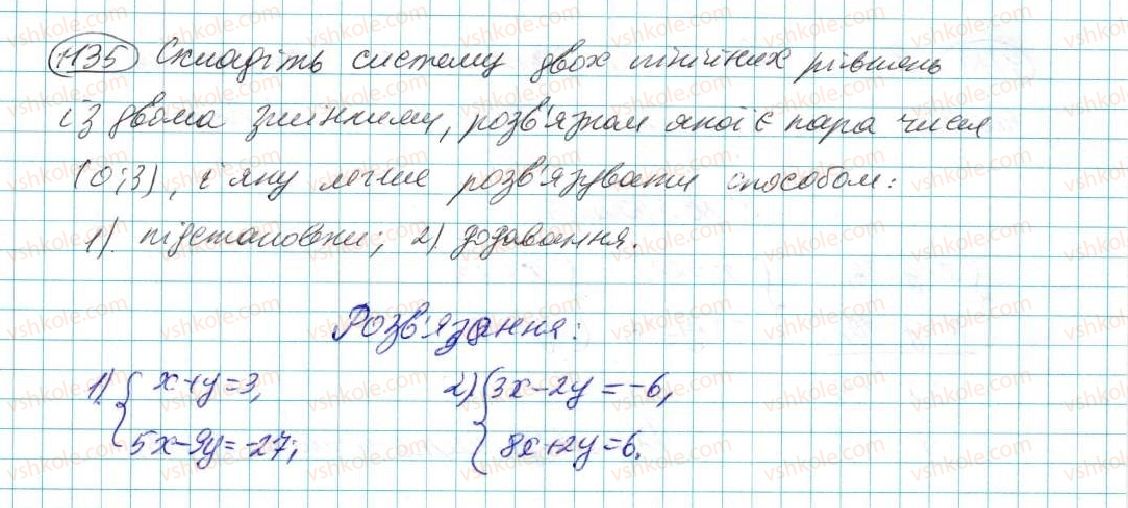 1135 Складіть систему двох лінійних рівнянь
із двома змінними, розв'язком якої є пара чисел
(0;3), і яку легше розв'язувати способом:
1) підстановки; 2) додавання.
Розв'язання:
1) { x+y=3, 2) { 3x-2y=-6,
5x-9y=-27; 8x+2y=6.